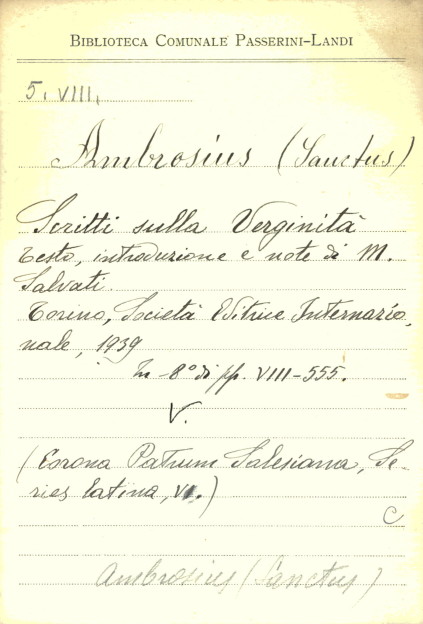 BIBLIOTECA COMUNALE PASSERINI-LANDI
5. VIII.
Ambrosius (Sanctus)
Scritti sulla Verginità
testo, introduzione e note di M.
Salvati.
Torino, Società Editrice Internazio,
nale, 1939
In-8° di pp. VIII-555.
V.
(Corona Patrum Salesiana, Se-
ries latina, VI.)
C
Ambrosius (Sanctus)